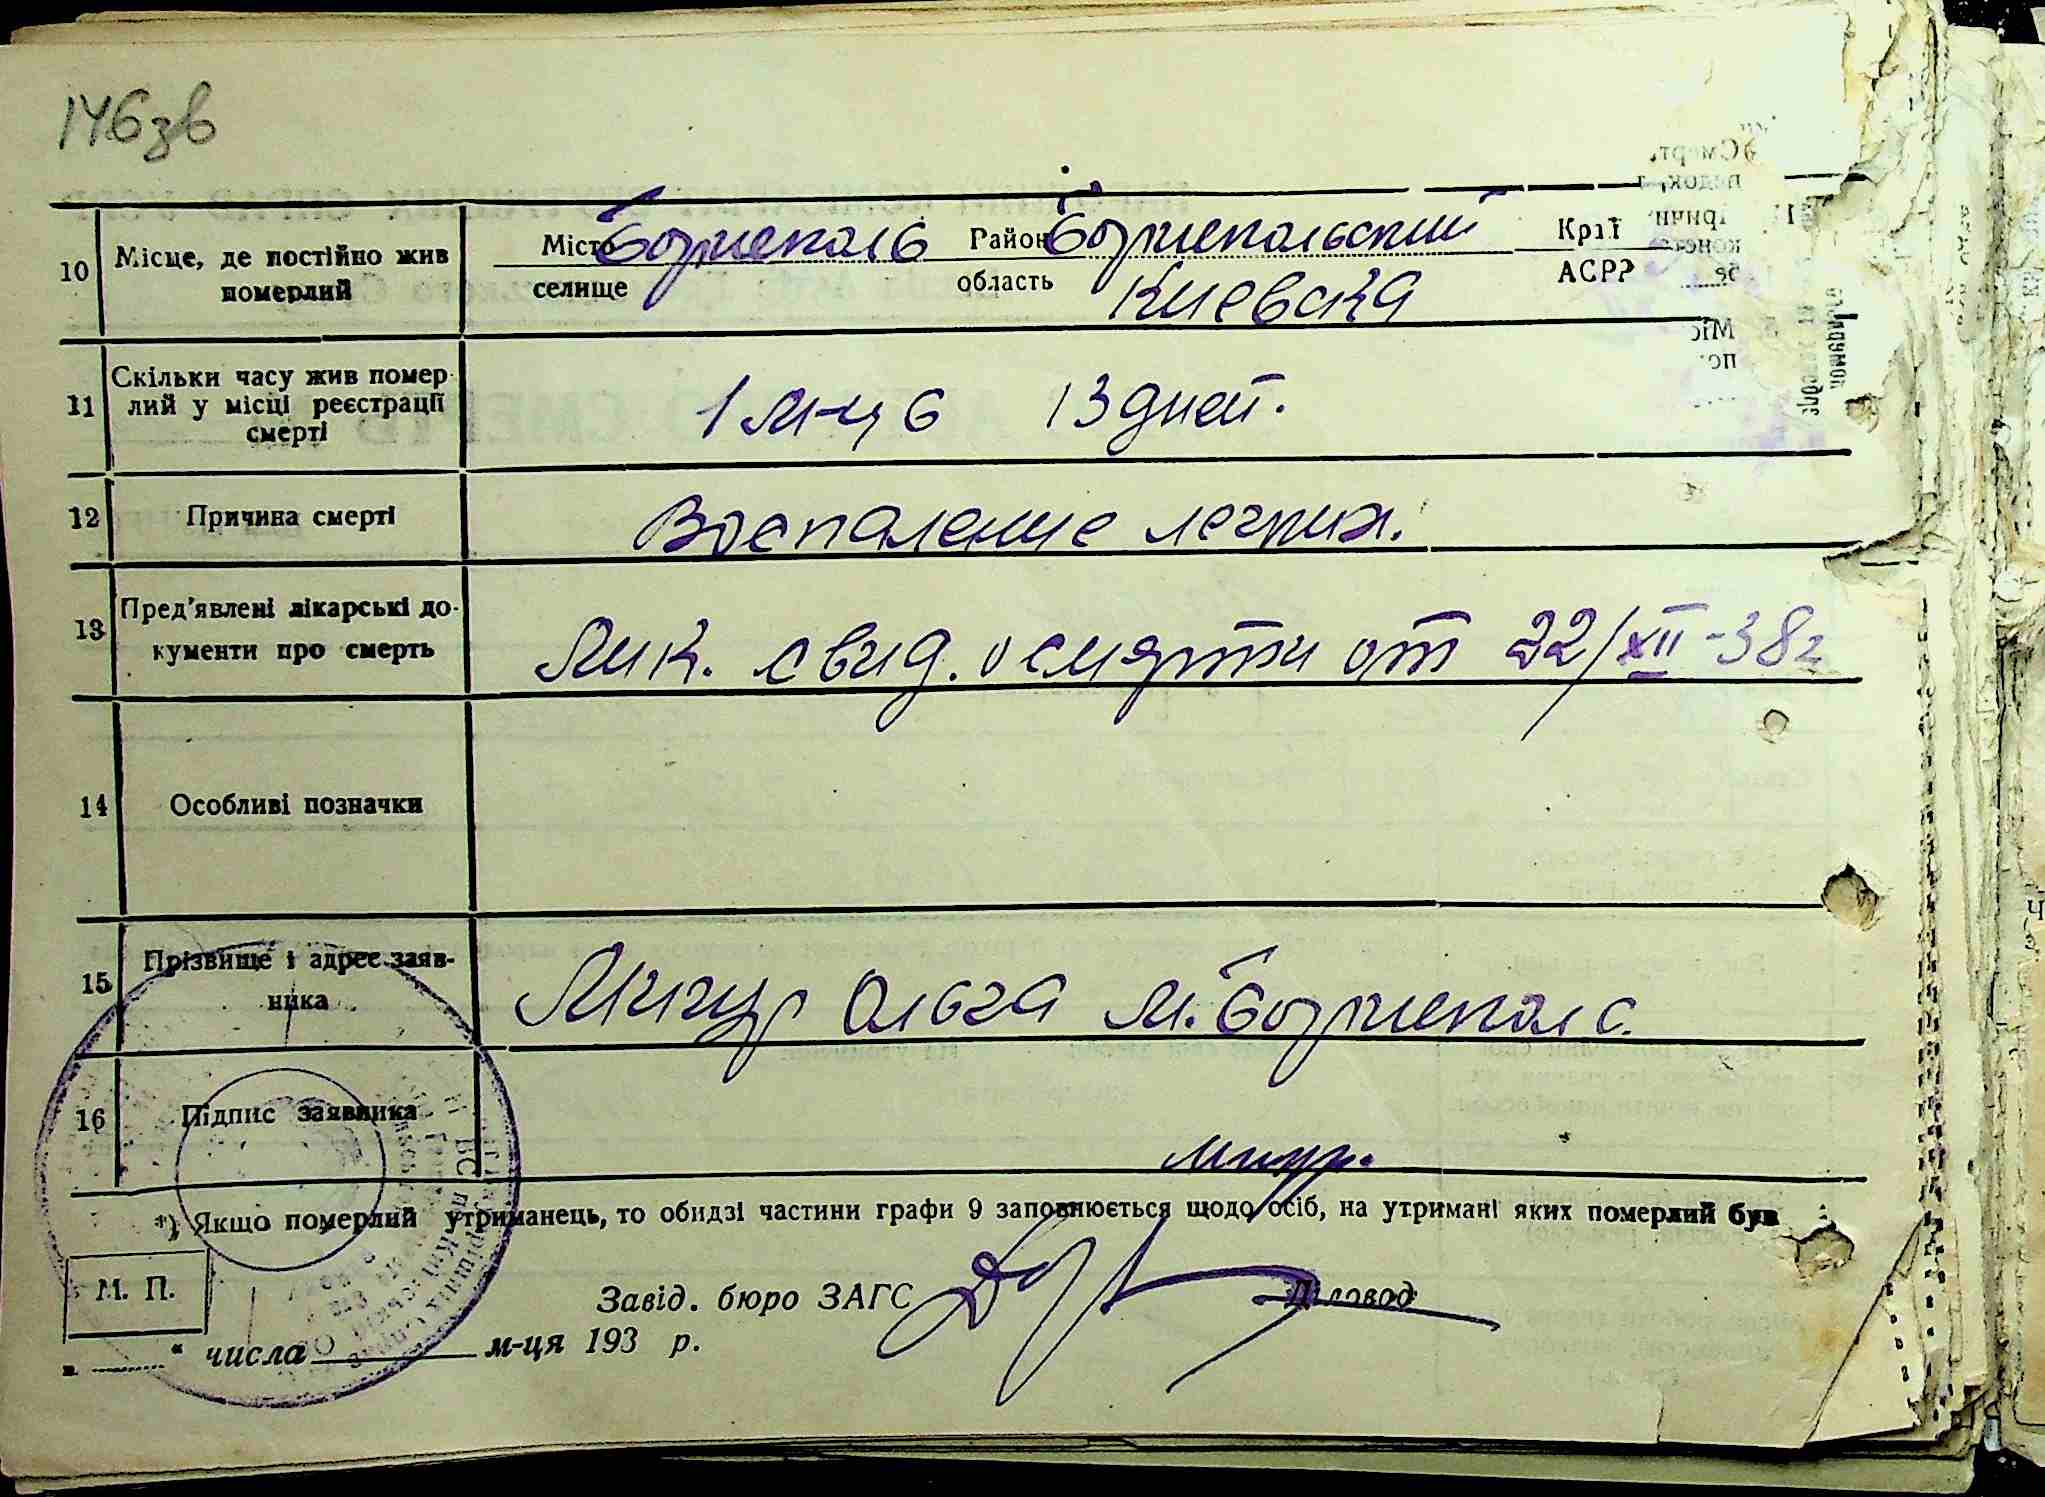 146зв
10 Місце, де постійно жив померлий
Місто Бориcполь Район Бориспольский Край
селище область Киевска АСРР
11 Скільки часу жив помер-
лий у місці реєстрації
смерті
1 м-ць 13 дней.
12 Причина смерті Воспаление легких.
13 Пред'явлені лікарські до-
кументи про смерть
Лик. свид. о смерти от 22/XII-38г
14 Особливі позначки
15 Прізвище і адрес заяв-
ника
Ольга м. Борисполь.
16 Підпис заявника
*) Якщо померлий утриманець, то обидві частини графи 9 заповнюється щодо осіб, на утримані яких померлий був
М. П.
Завід. бюро ЗАГС Діловод
„ ........“ числа м-ця 193 р.